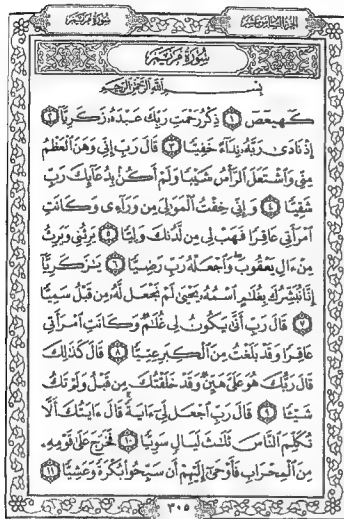 الجزء السادس عشر
سورة مريم
سورة مريم
بسم الله الرحمن الرحيم
كهيعص ١ ذكر رحمت ربك عبده زكريا ٢
إذ نادى ربه نداء خفيا ٣ قال رب إني وهن العظم
مني واشتعل الرأس شيبا ولم أكن بدعائك رب
شقيا ٤ وإني خفت الموالي من وراءي وكانت
امرأتي عاقرا فهب لي من لدنك وليا ٥ يرثني ويرث
من ءال يعقوب واجعله رب رضيا ٦ يزكريا
إنا نبشرك بغلم اسمه يحيى لم نجعل له من قبل سميا
٧ قال رب أنى يكون لي غلم وكانت امرأتي
عاقرا وقد بلغت من الكبر عتيا ٨ قال كذلك
قال ربك هو علي هين وقد خلقتك من قبل ولم تك
شيئا ٩ قال رب اجعل لي ءاية قال ءايتك ألا
تكلم الناس ثلث ليال سويا ١٠ فخرج على قومه
من المحراب فأوحى إليهم أن سبحوا بكرة وعشيا ١١
٣٠٥